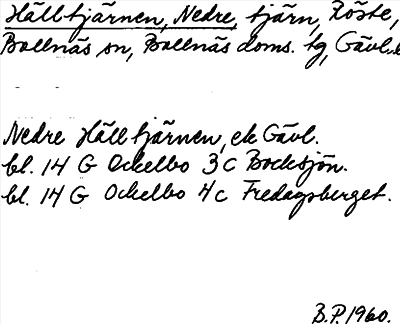 Hälltjärnen, Nedre, tjärn, Röste,
Bollnäs sn, Bollnäs doms. tg, Gävl.
Nedre Hälltjärnen, ek Gävl.
bl. 14 G Ockelbo 3c Bocksjön.
bl. 14 G Ockelbo 4c Fredagsberget.
B.P. 1960.